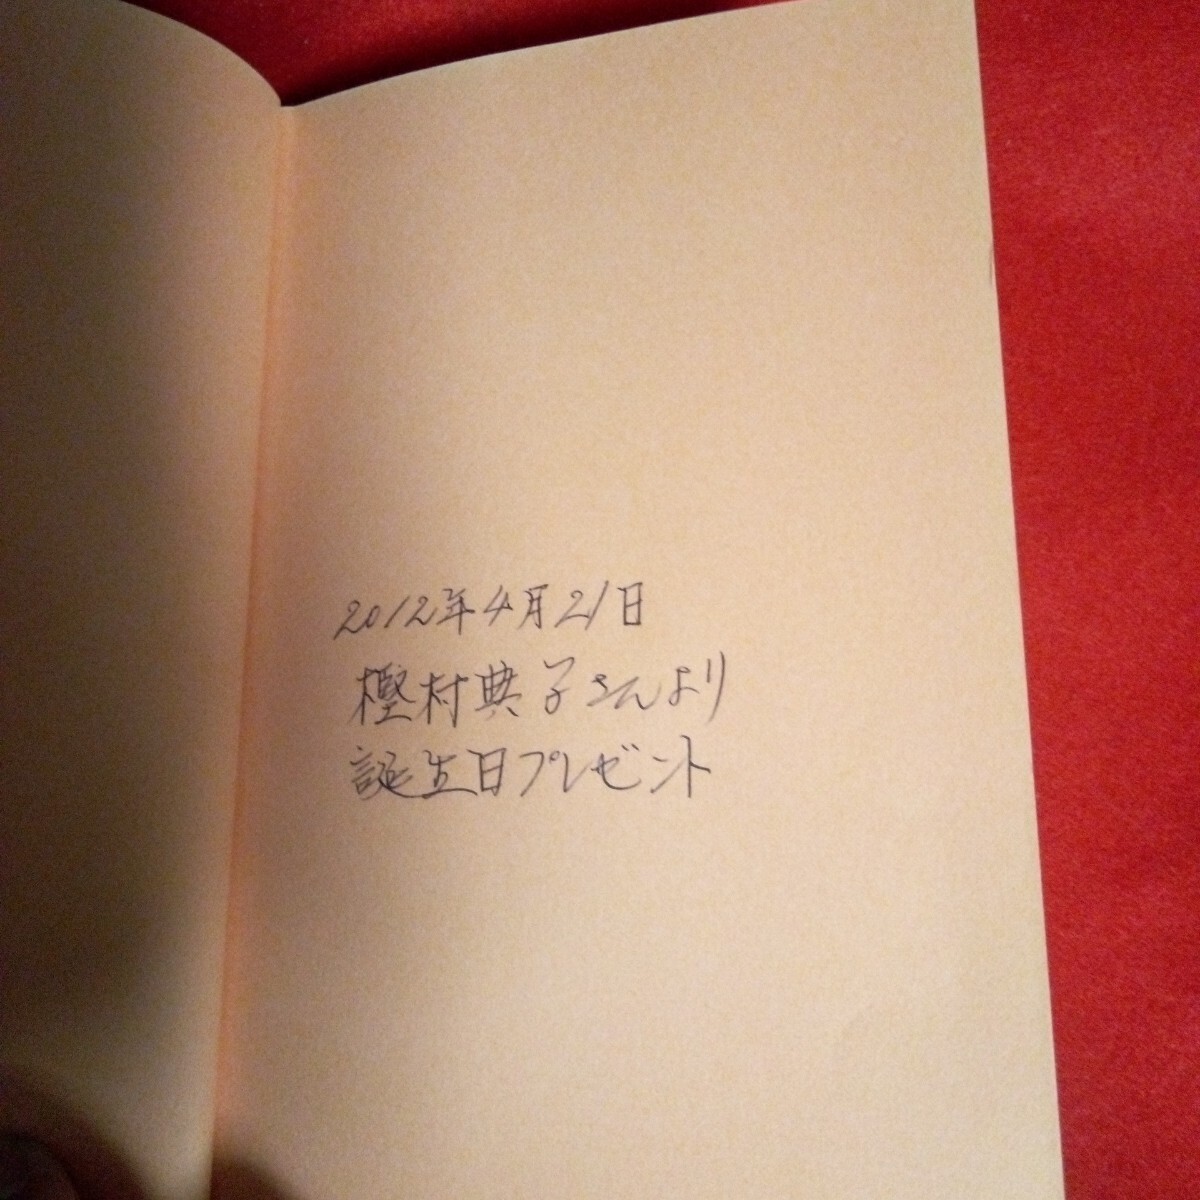 2012年4月21日
樫村典子さんより
誕生日プレゼント